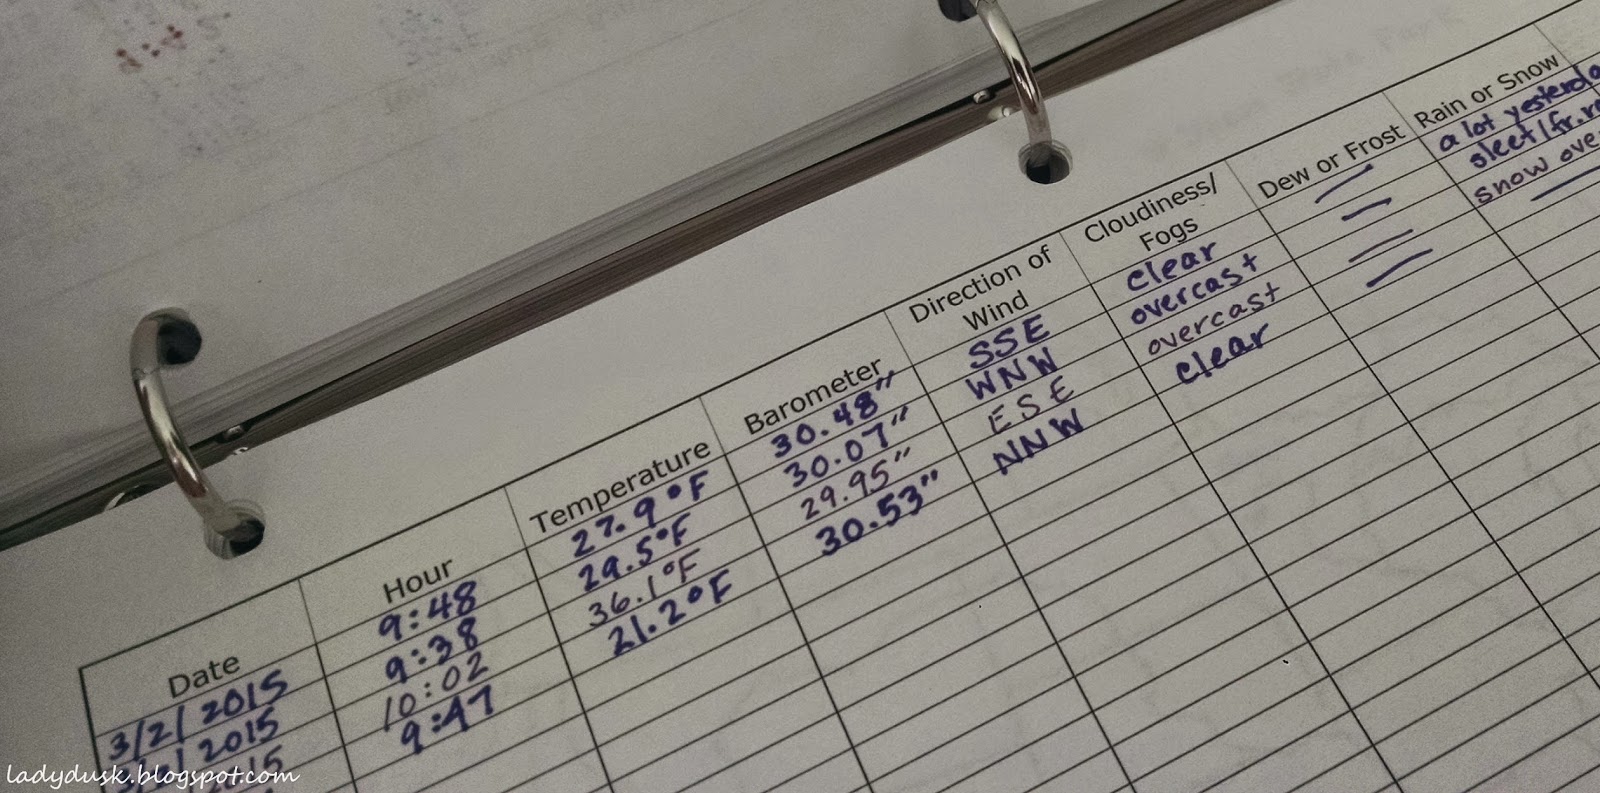 Date Hour Temperature Barometer Direction of Wind Cloudiness/ Fogs Dew or Frost Rain or Snow
3/2/2015 9:48 27.9°F 30.48" SSE clear — a lot yesterday
2015 9:38 29.5°F 30.07" WNW overcast — sleet/fr.
10:02 36.1°F 29.95" ESE overcast — snow
9:47 21.2°F 30.53" NNW clear — —
ladydusk.blogspot.com